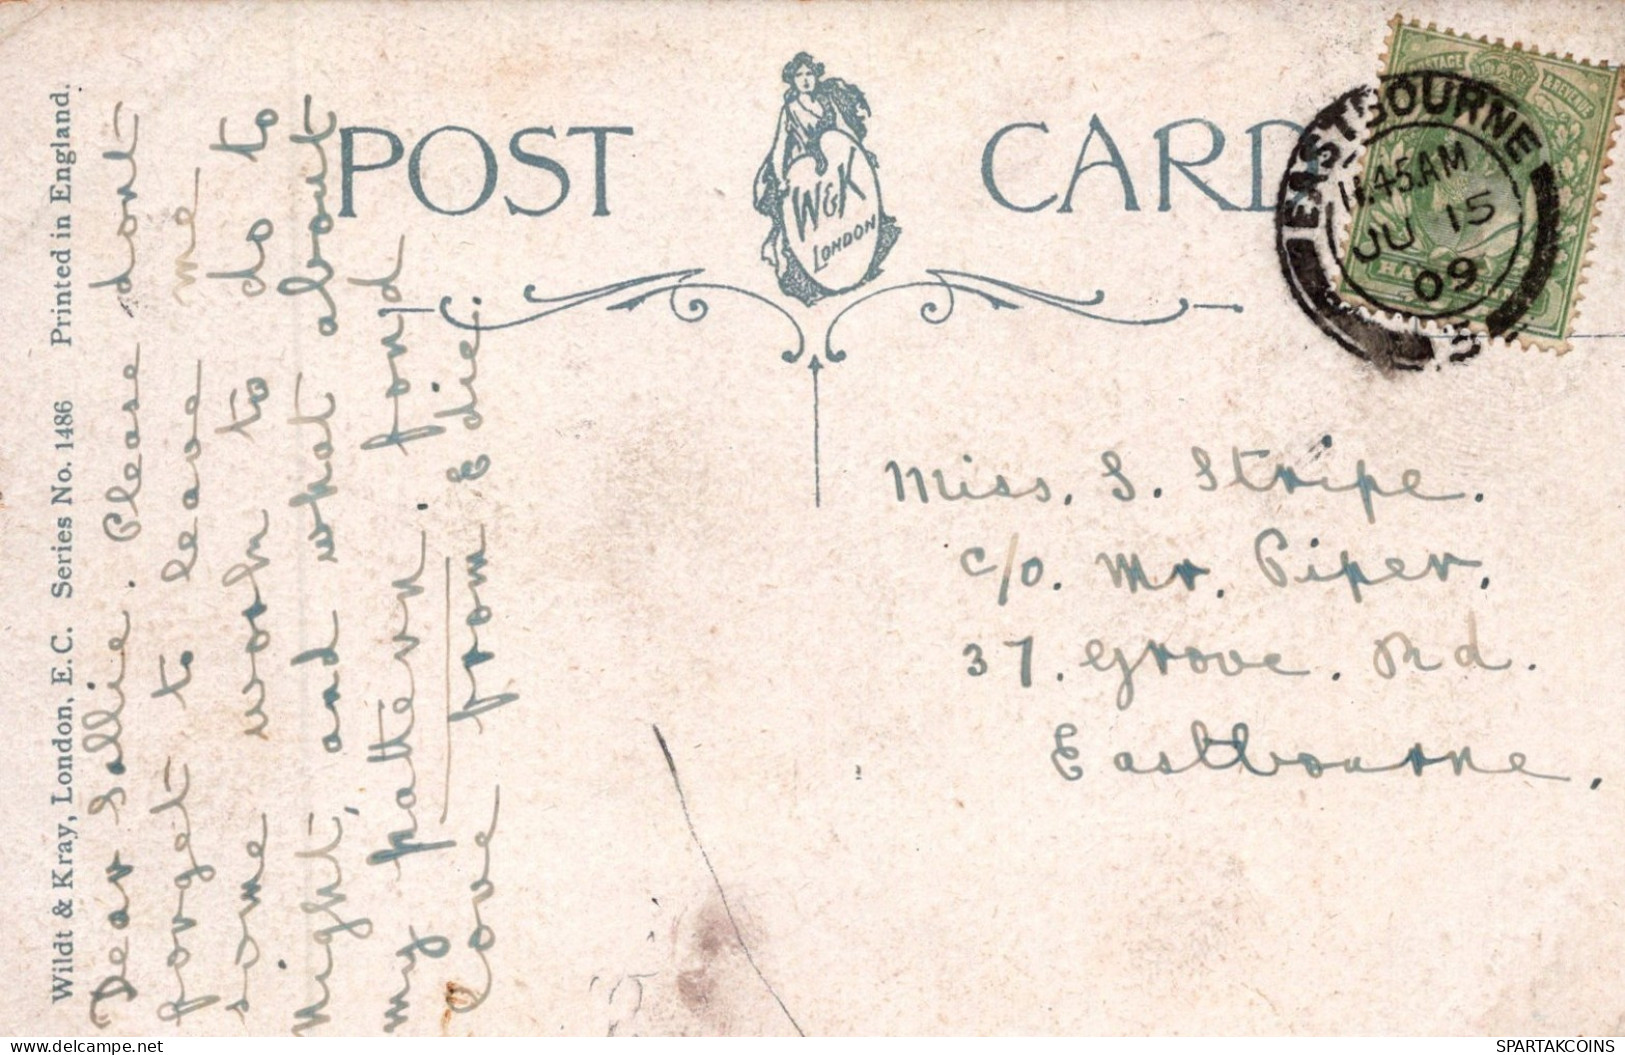 Wildt & Kray, London, E. C. Series No. 1486 Printed in England.
POST CARD
W&K
LONDON
POSTAGE & REVENUE
EASTBOURNE
11.45.AM
JU 15
09
Dear Sallie. Please dont
forget to leave me
some work to do to
night, and what about
my pattern. fond
Love from Edie.
Miss. S. Stripe.
c/o. Mr. Piper.
37. Grove. Rd.
Eastbourne.
delcampe.net
SPARTAKCOINS